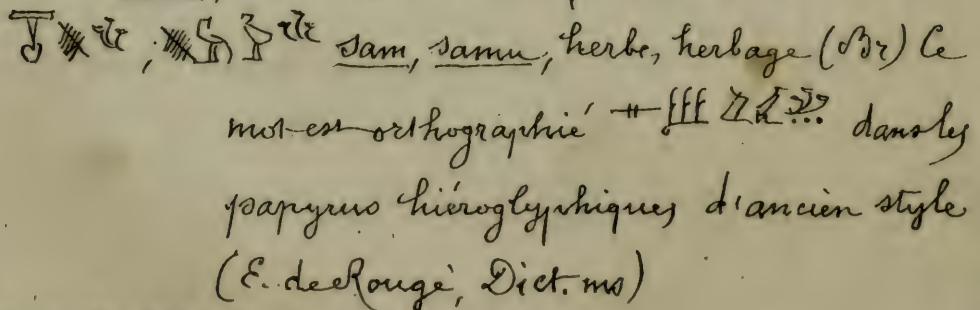 , sam, samu, herbe, herbage (Br) Ce
mot est orthographié dans les
papyrus hiéroglyphiques d'ancien style
(E. de Rougé, Dict. ms)